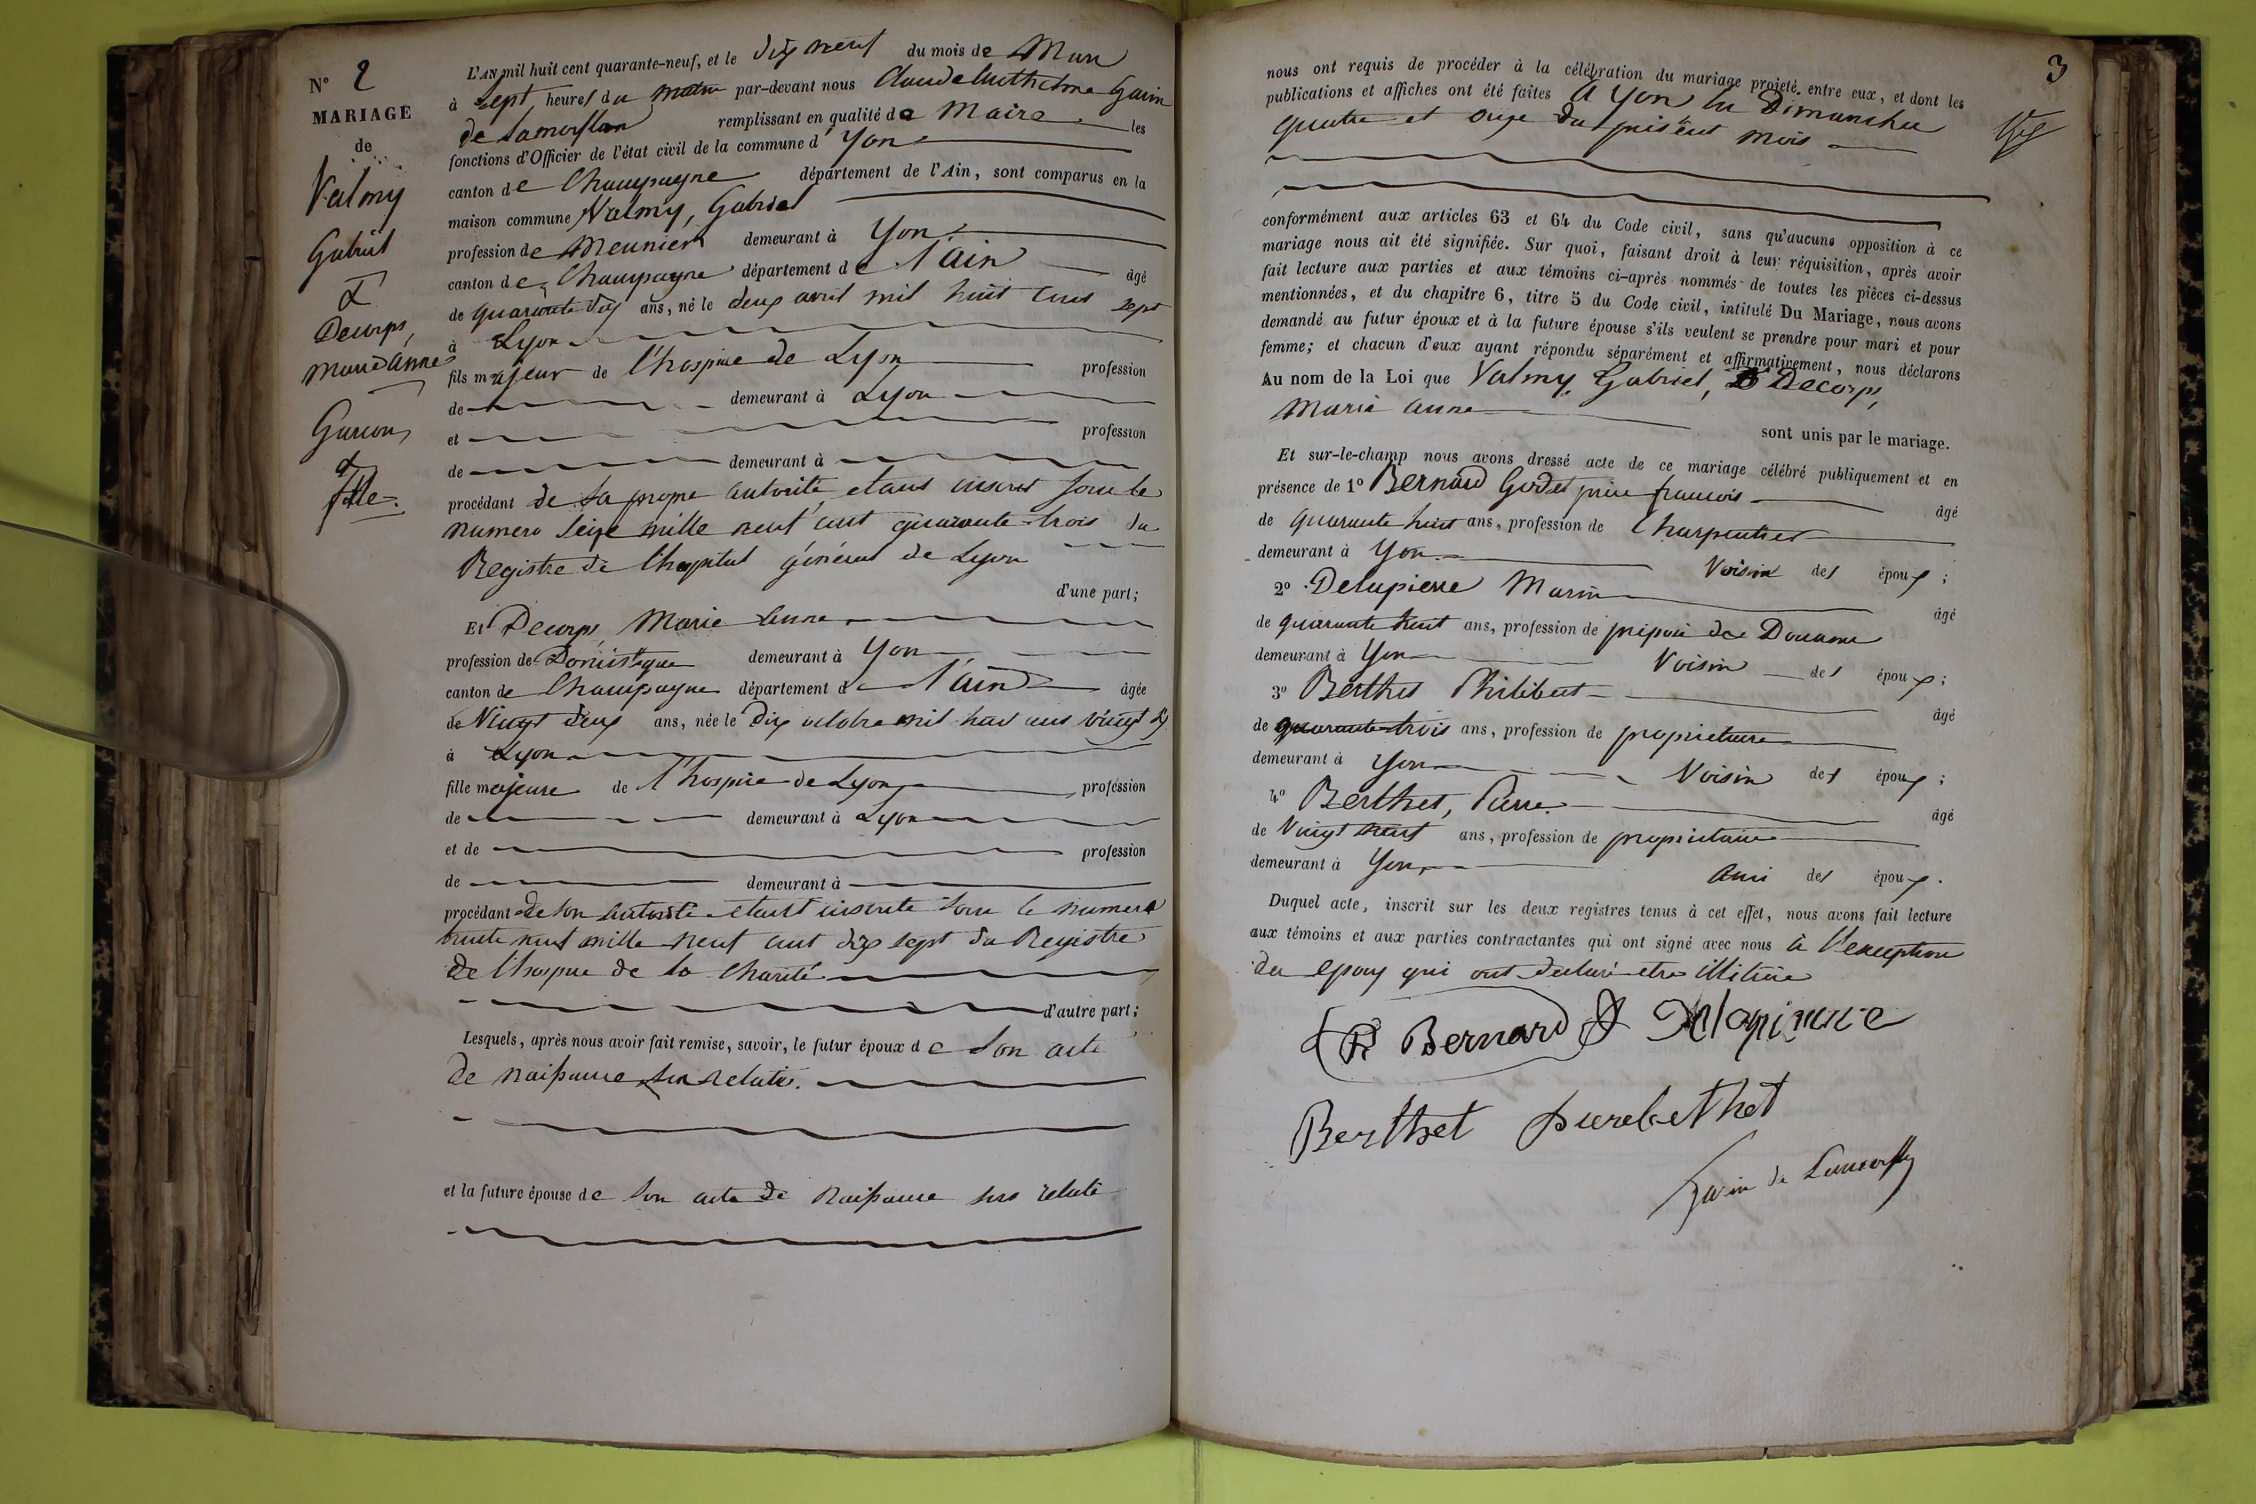 N° 2
MARIAGE
de
Valmy
Gabriel
&
Decorps,
Marie Anne
Garçon
&
fille.
L'AN mil huit cent quarante-neuf, et le dix neuf du mois de Mars
à sept heures du matin par-devant nous Claude Anthelme Garin
de Lamorflan remplissant en qualité de Maire les
fonctions d'Officier de l'état civil de la commune d'Yon
canton de Champagne département de l'Ain, sont comparus en la
maison commune Valmy, Gabriel
profession de Meunier demeurant à Yon
canton de Champagne département de l'ain âgé
de quarante dix ans, né le deux avril mil huit cent sept
à Lyon
fils majeur de l'hospice de Lyon profession
de demeurant à Lyon
et profession
de demeurant à
procédant de sa propre autorité etant inscrit sous le
numero seize mille neuf cent quarante-trois du
Registre de l'hopital général de Lyon
d'une part;
Et Decorps, Marie Anne
profession de Domestique demeurant à Yon
canton de Champagne département de l'ain âgée
de Vingt deux ans, née le dix octobre mil huit cent vingt six
à Lyon
fille majeure de l'hospice de Lyon, profession
de demeurant à Lyon
et de profession
de demeurant à
procédant de son autorité etant inscrite sous le numero
trente neuf mille neuf cent dix sept du Registre
de l'hospice de la Charité
d'autre part;
Lesquels, après nous avoir fait remise, savoir, le futur époux de son acte
de naissance sus relaté.
et la future épouse de son acte de naissance sus relaté
3
nous ont requis de procéder à la célébration du mariage projeté entre eux, et dont les
publications et affiches ont été faites à Yon les Dimanches
quatre et onze du présent mois
conformément aux articles 63 et 64 du Code civil, sans qu'aucune opposition à ce
mariage nous ait été signifiée. Sur quoi, faisant droit à leur réquisition, après avoir
fait lecture aux parties et aux témoins ci-après nommés de toutes les pièces ci-dessus
mentionnées, et du chapitre 6, titre 5 du Code civil, intitulé Du Mariage, nous avons
demandé au futur époux et à la future épouse s'ils veulent se prendre pour mari et pour
femme; et chacun d'eux ayant répondu séparément et affirmativement, nous déclarons
Au nom de la Loi que Valmy, Gabriel, & Decorps,
Marie Anne
sont unis par le mariage.
Et sur-le-champ nous avons dressé acte de ce mariage célébré publiquement et en
présence de 1° Bernard Godet père françois âgé
de quarante huit ans, profession de Charpentier
demeurant à Yon Voisin des époux;
2° Delapierre Marin âgé
de quarante huit ans, profession de préposé des Douane
demeurant à Yon Voisin des époux;
3° Berthet Philibert âgé
de quarante-trois ans, profession de propriétaire
demeurant à Yon Voisin des époux;
4° Berthet, Pierre âgé
de Vingt neuf ans, profession de propriétaire
demeurant à Yon Ami des époux.
Duquel acte, inscrit sur les deux registres tenus à cet effet, nous avons fait lecture
aux témoins et aux parties contractantes qui ont signé avec nous à l'exception
des epoux qui ont déclaré etre illitérés
Bernard Delapierre
Berthet pierebethet
Garin de Lamorflan